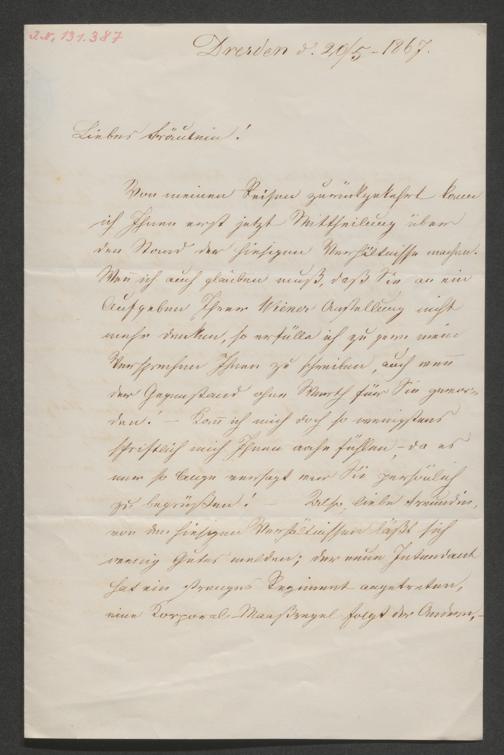 I.N. 131.387
Dresden d. 20/5-1867.
Liebes Fräulein!
Von meinen Reisen zurückgekehrt kann
ich Ihnen erst jetzt Mittheilung über
den Stand der hiesigen Verhältnisse machen.
Wenn ich auch glauben muß, daß Sie an ein
Aufgeben Ihrer Wiener Anstellung nicht
mehr denken, so erfülle ich zu gern mein
Versprechen Ihnen zu schreiben, auch wenn
der Gegenstand ohne Werth für Sie gewor-
den! – Kann ich mich doch so wenigstens
schriftlich mich Ihnen nahe fühlen – da es
mir so lange versagt war Sie persönlich
zu begrüßen! – Also, liebe Freundin,
von den hiesigen Verhältnissen läßt sich
wenig Gutes melden; der neue Intendant
hat ein strenges Regiment angetreten,
eine Korporal-Maaßregel folgt der Andern, –